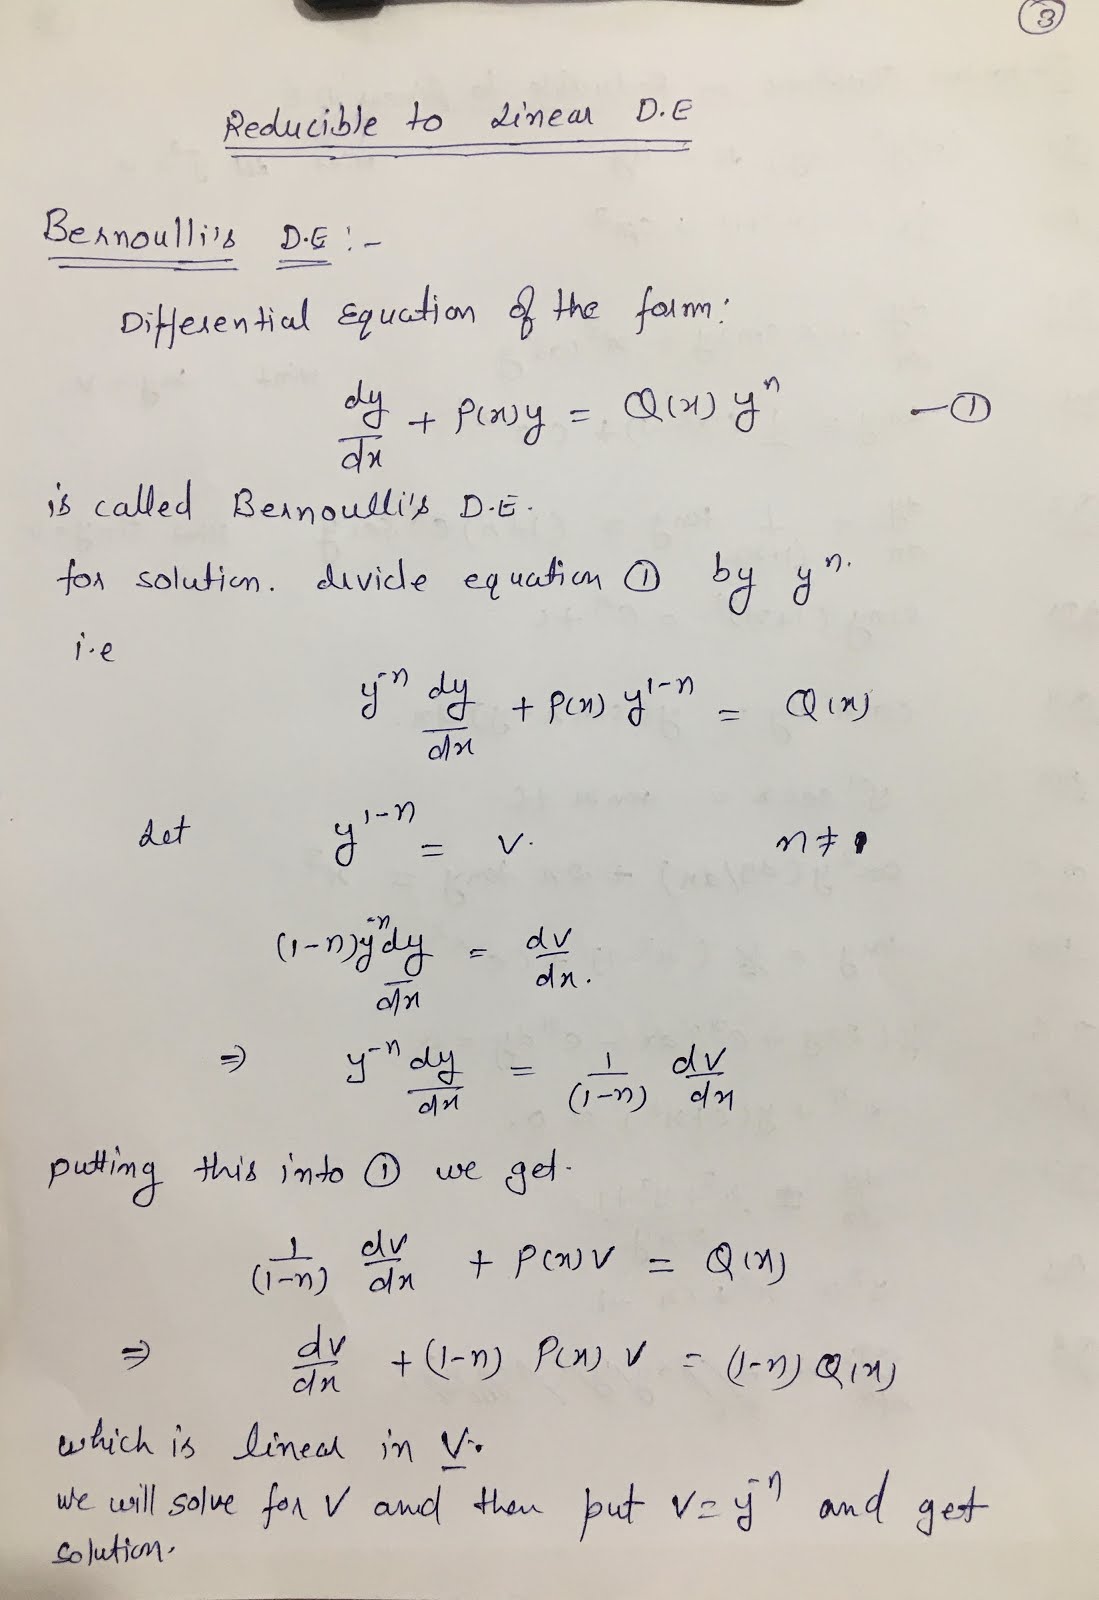 3
Reducible to Linear D.E
Bernoulli's D.E :-
Differential Equation of the form:
dy/dx + P(x)y = Q(x) yⁿ —①
is called Bernoulli's D.E.
for solution. divide equation ① by yⁿ.
i.e
y⁻ⁿ dy/dx + P(x) y¹⁻ⁿ = Q(x)
Let y¹⁻ⁿ = v. n ≠ 1
(1-n)y⁻ⁿ dy/dx = dv/dx.
⇒ y⁻ⁿ dy/dx = 1/(1-n) dv/dx
putting this into ① we get.
1/(1-n) dv/dx + P(x) v = Q(x)
⇒ dv/dx + (1-n) P(x) v = (1-n) Q(x)
which is linear in V.
we will solve for v and then put v = y⁻ⁿ and get
solution.